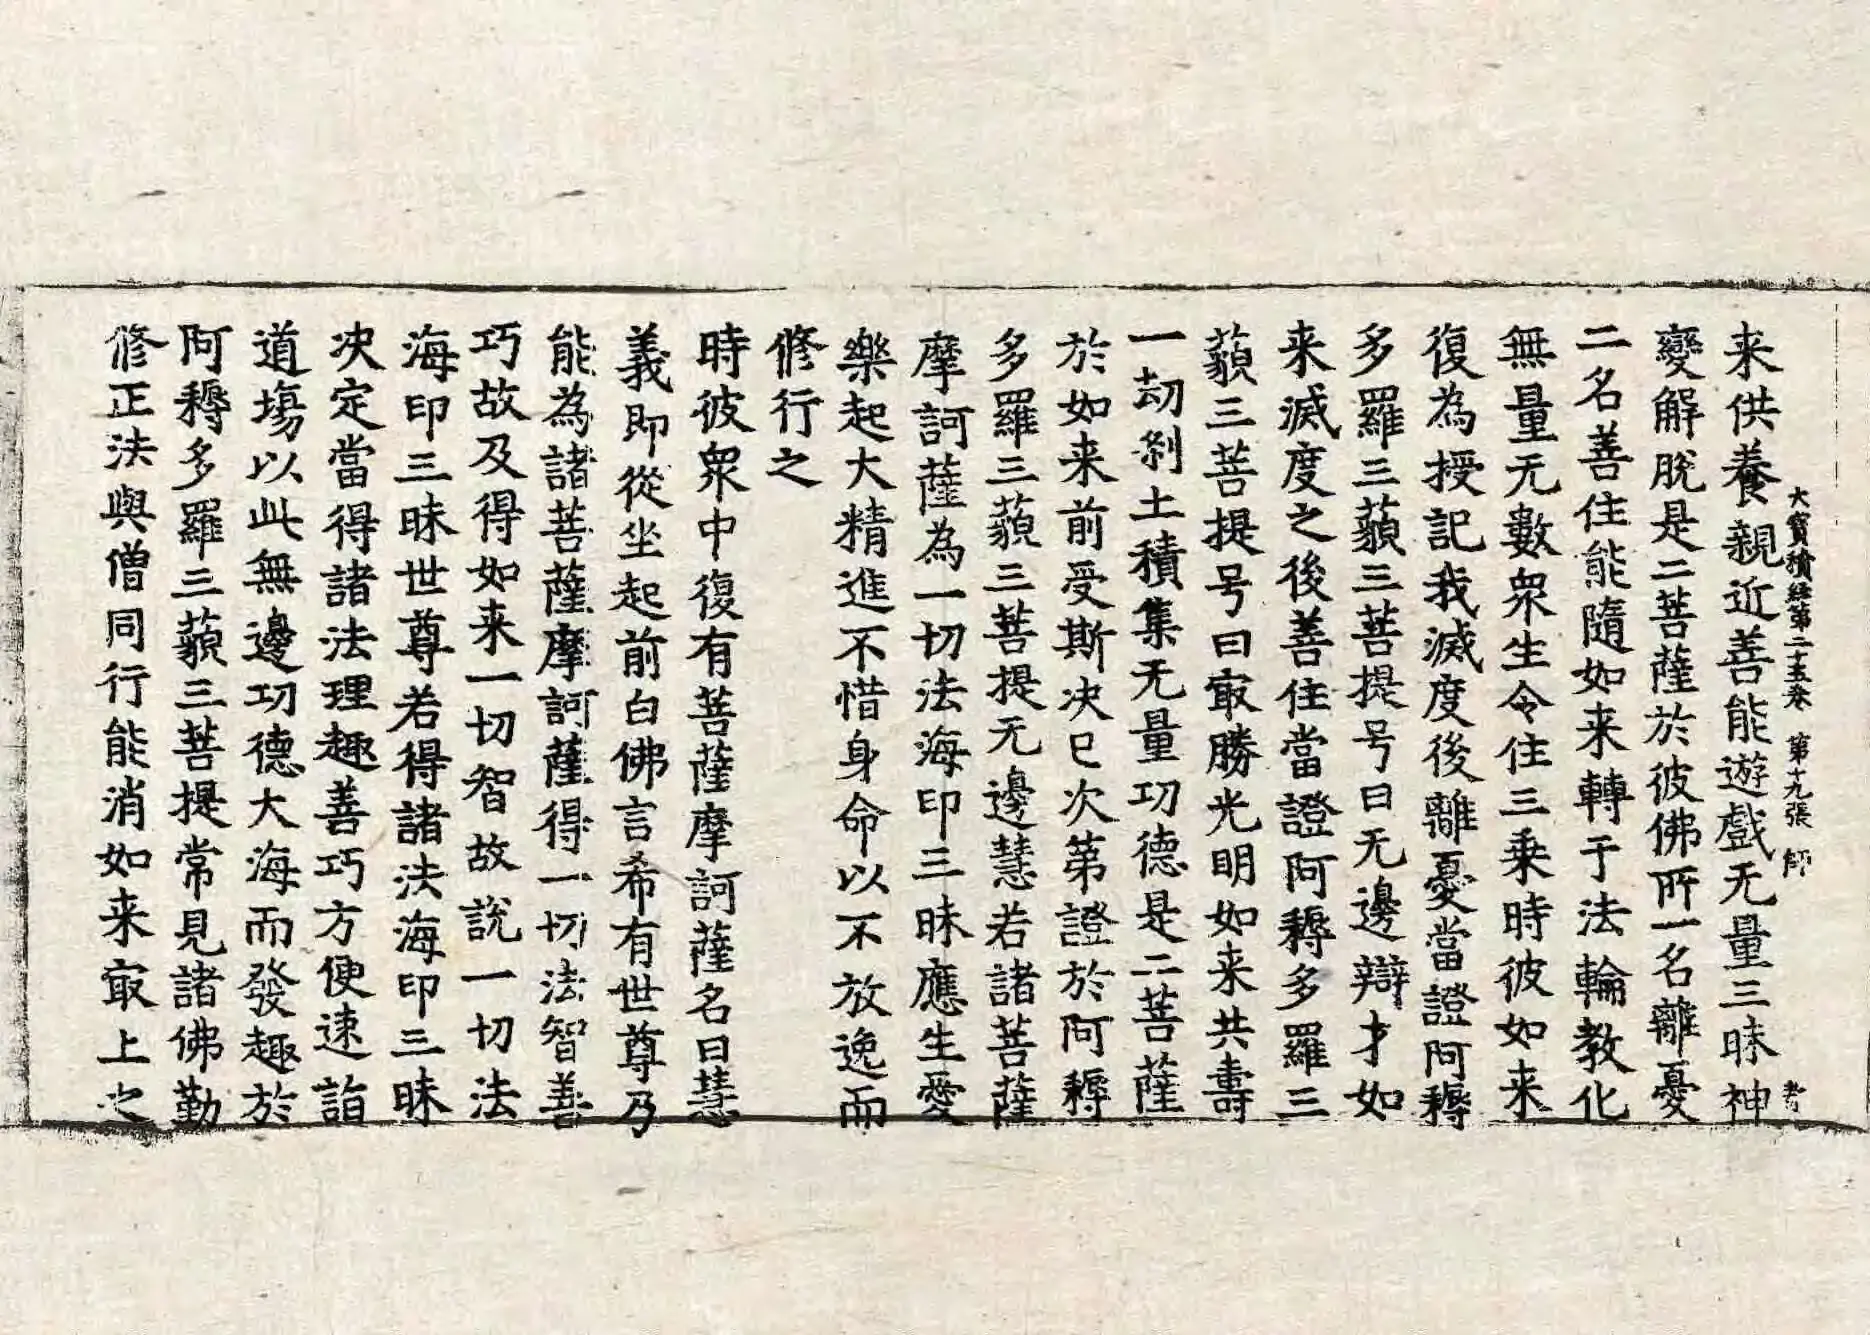 来供養親近善能遊戲无量三昧神
大寶積経第二十五卷 第十九張 師
變解脫是二菩薩於彼佛所一名離憂
二名善住能隨如来轉于法輪教化
無量无數衆生令住三乗時彼如来
復為授記我滅度後離憂當證阿耨
多羅三藐三菩提号曰无邊辯才如
来滅度之後善住當證阿耨多羅三
藐三菩提号曰㝡勝光明如来共壽
一劫刹土積集无量功德是二菩薩
於如来前受斯决已次第證於阿耨
多羅三藐三菩提无邊慧若諸菩薩
摩訶薩為一切法海印三昧應生愛
樂起大精進不惜身命以不放逸而
修行之
時彼衆中復有菩薩摩訶薩名曰慧
義即從坐起前白佛言希有世尊乃
能為諸菩薩摩訶薩得一切法智善
巧故及得如来一切智故說一切法
海印三昧世尊若得諸法海印三昧
决定當得諸法理趣善巧方便速詣
道場以此無邊功德大海而發趣於
阿耨多羅三藐三菩提常見諸佛勤
修正法與僧同行能消如来㝡上之